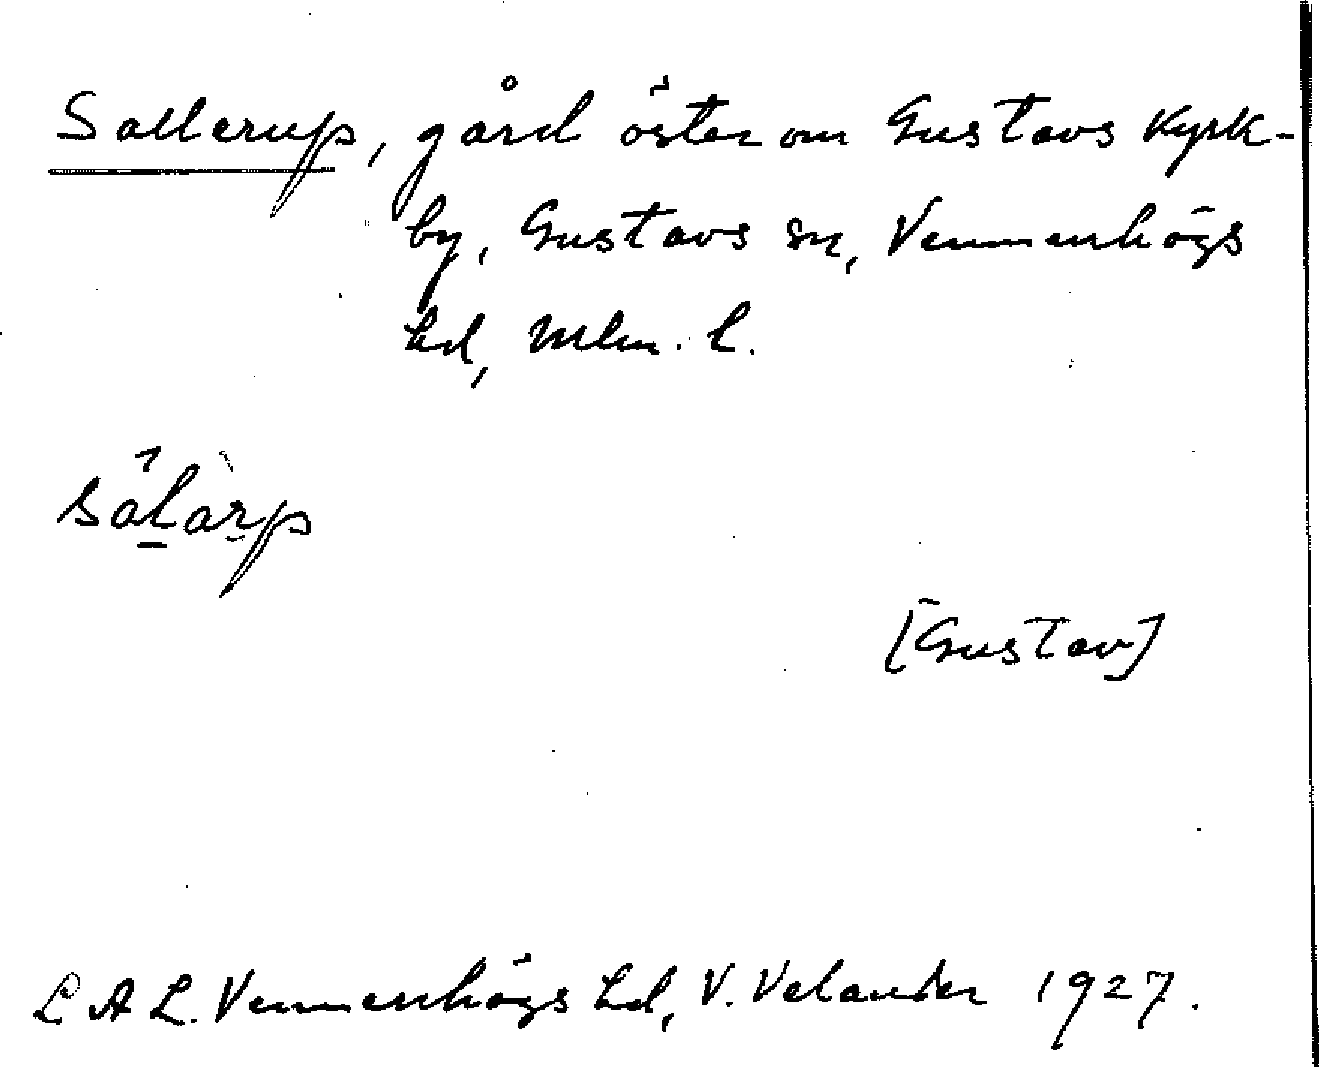 Sallerup, gård öster om Gustavs Kyrk-
by, Gustavs sn, Vemmenhögs
hd, Mlm. l.
sálàrp
[Gustav]
L A L. Vemmenhögs hd, V. Velander 1927.